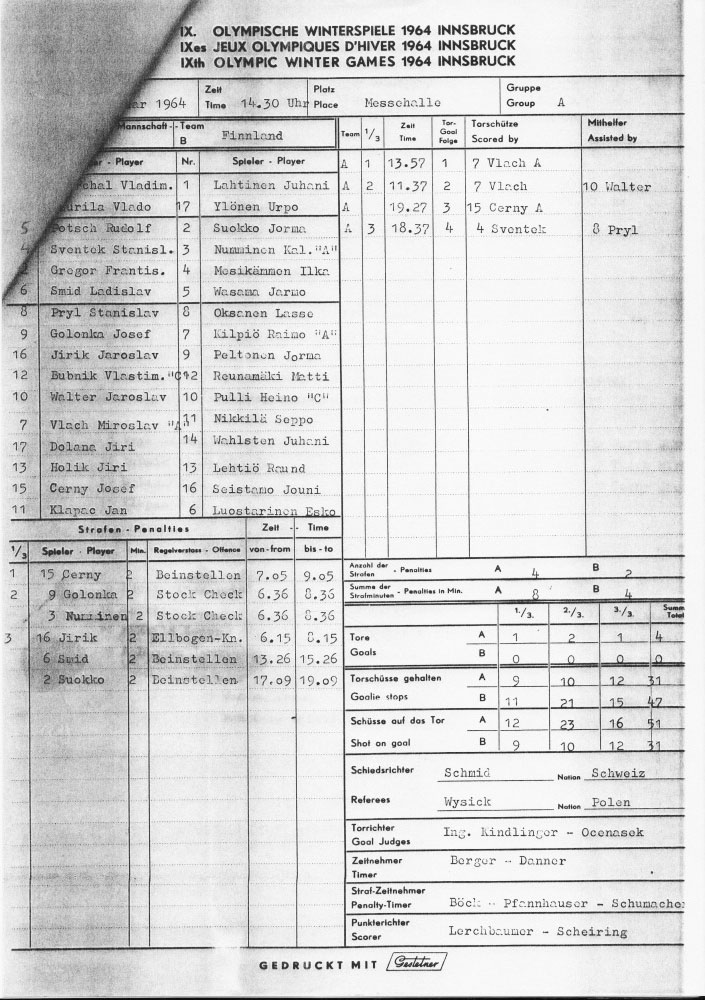 IX. OLYMPISCHE WINTERSPIELE 1964 INNSBRUCK
IXes JEUX OLYMPIQUES D'HIVER 1964 INNSBRUCK
IXth OLYMPIC WINTER GAMES 1964 INNSBRUCK
Zeit Platz Gruppe
1964 Time 14.30 Uhr Place Messehalle Group A
Mannschaft - Team B Finnland
Team 1/3 Zeit Time Tor- Goal Folge Torschütze Scored by Mithelfer Assisted by
Player Nr. Spieler - Player
A 1 13.57 1 7 Vlach A
Vladim. 1 Lahtinen Juhani A 2 11.37 2 7 Vlach 10 Walter
Vlado 17 Ylönen Urpo A 19.27 3 15 Cerny A
5 Potsch Rudolf 2 Suokko Jorma A 3 18.37 4 4 Sventek 8 Pryl
4 Sventek Stanisl. 3 Numminen Kal. "A"
2 Gregor Frantis. 4 Mesikämmen Ilka
6 Smid Ladislav 5 Wasama Jarmo
8 Pryl Stanislav 8 Oksanen Lasse
9 Golonka Josef 7 Kilpiö Raimo "A"
16 Jirik Jaroslav 9 Peltonen Jorma
12 Bubnik Vlastim. "C" 12 Reunamäki Matti
10 Walter Jaroslav 10 Pulli Heino "C"
7 Vlach Miroslav "A" 11 Nikkilä Seppo
17 Dolana Jiri 14 Wahlsten Juhani
13 Holik Jiri 13 Lehtiö Raund
15 Cerny Josef 16 Seistamo Jouni
11 Klapac Jan 6 Luostarinen Esko
Strafen - Penalties Zeit - Time
1/3 Spieler - Player Min. Regelverstoss - Offence von-from bis-to
1 15 Cerny 2 Beinstellen 7.05 9.05
2 9 Golonka 2 Stock Check 6.36 8.36
3 Numminen 2 Stock Check 6.36 8.36
3 16 Jirik 2 Ellbogen-Kn. 6.15 8.15
6 Smid 2 Beinstellen 13.26 15.26
2 Suokko 2 Beinstellen 17.09 19.09
Anzahl der Strafen - Penalties A 4 B 2
Summe der Strafminuten - Penalties in Min. A 8 B 4
1./3. 2./3. 3./3. Summ Total
Tore A 1 2 1 4
Goals B 0 0 0 0
Torschüsse gehalten A 9 10 12 31
Goalie stops B 11 21 15 47
Schüsse auf das Tor A 12 23 16 51
Shot on goal B 9 10 12 31
Schiedsrichter Schmid Nation Schweiz
Referees Wysick Nation Polen
Torrichter Goal Judges Ing. Kindlinger - Ocenasek
Zeitnehmer Timer Berger - Danner
Straf-Zeitnehmer Penalty-Timer Böck - Pfannhauser - Schumacher
Punkterichter Scorer Lerchbaumer - Scheiring
GEDRUCKT MIT Gestetner